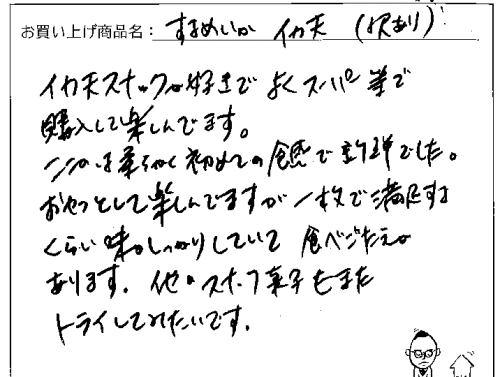 お買い上げ商品名：するめいか イカ天 (訳あり)
イカ天スナックが好きで よくスーパー等で
購入して楽しんでます。
こちらは柔らかく初めての食感で新鮮でした。
おやつとして楽しんでますが 一枚で満足する
くらい味がしっかりしていて 食べごたえが
あります。他のスナック菓子もまた
トライしてみたいです。